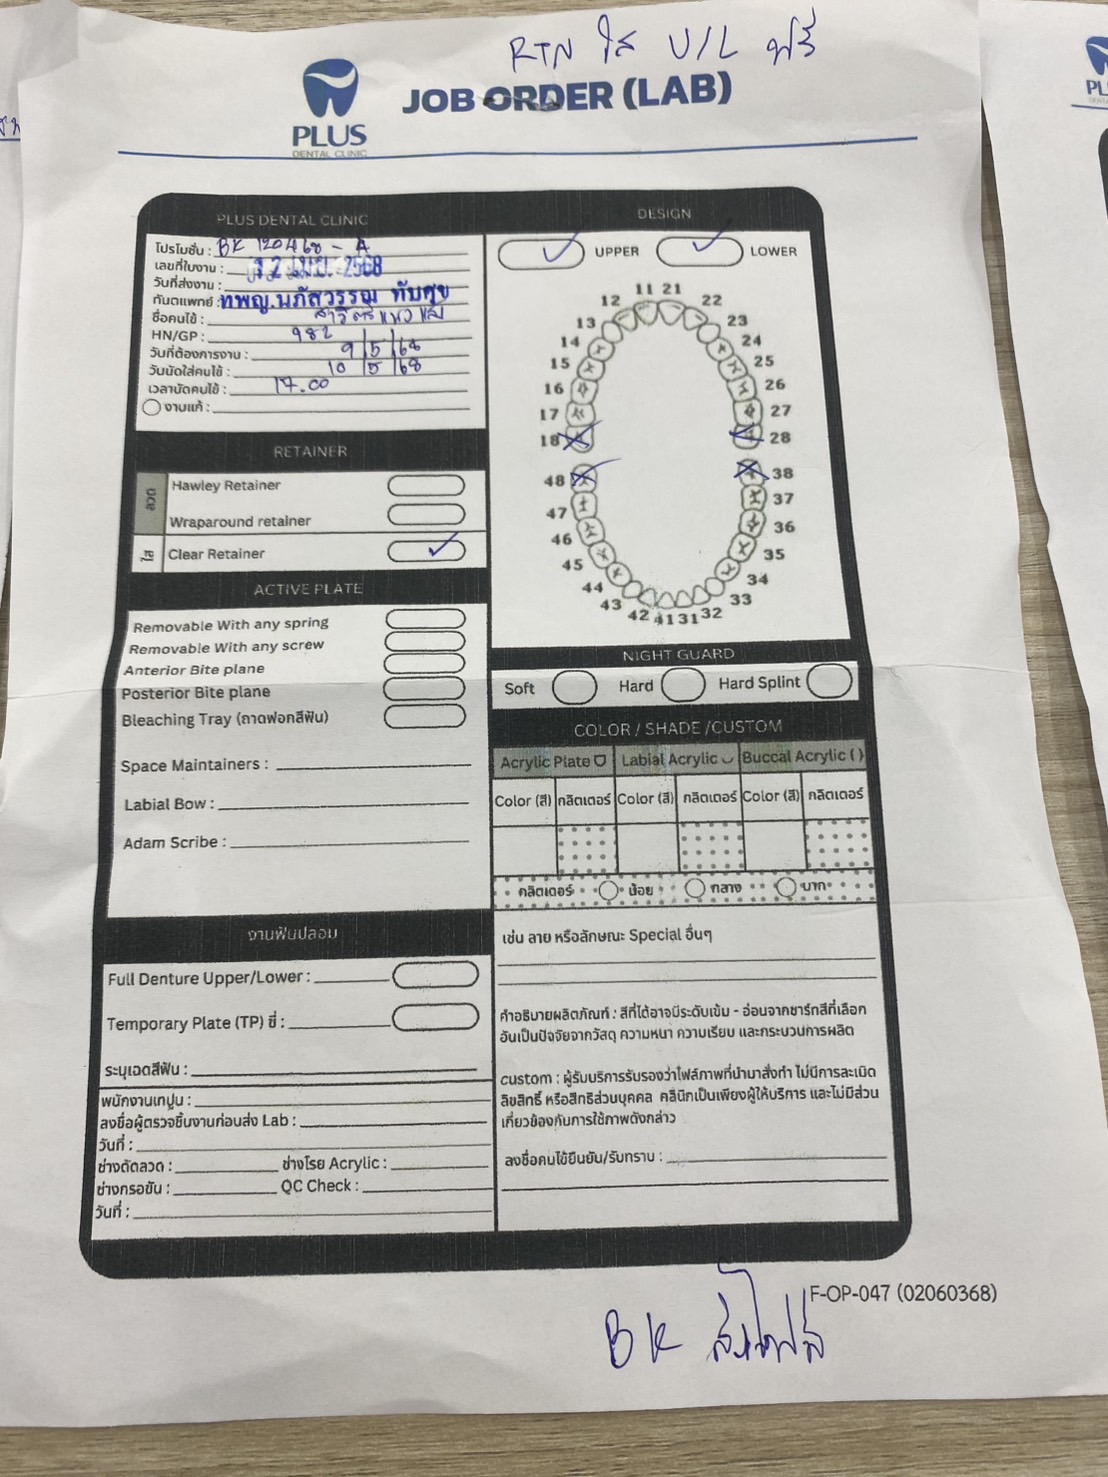 RTN ใส U/L ฟรี
PLUS
DENTAL CLINIC
JOB ORDER (LAB)
PLUS DENTAL CLINIC
โปรโมชั่น : BK 120468 - A
เลขที่ใบงาน :
วันที่ส่งงาน : 12 เม.ย. 2568
ทันตแพทย์ : ทพญ.นภัสวรรณ ทับศุข
ชื่อคนไข้ :
HN/GP : 982
วันที่ต้องการงาน : 9 5 68
วันนัดใส่คนไข้ : 10 5 68
เวลานัดคนไข้ : 17.00
งานแก้ :
RETAINER
ลวด
Hawley Retainer
Wraparound retainer
ใส
Clear Retainer
ACTIVE PLATE
Removable With any spring
Removable With any screw
Anterior Bite plane
Posterior Bite plane
Bleaching Tray (ถาดฟอกสีฟัน)
Space Maintainers :
Labial Bow :
Adam Scribe :
งานฟันปลอม
Full Denture Upper/Lower :
Temporary Plate (TP) ซี่ :
ระบุเฉดสีฟัน :
พนักงานเทปูน :
ลงชื่อผู้ตรวจชิ้นงานก่อนส่ง Lab :
วันที่ :
ช่างดัดลวด : ช่างโรย Acrylic :
ช่างกรอขัน : QC Check :
วันที่ :
DESIGN
UPPER LOWER
11 21
12 22
13 23
14 24
15 25
16 26
17 27
18 28
48 38
47 37
46 36
45 35
44 34
43 33
42 41 31 32
NIGHT GUARD
Soft Hard Hard Splint
COLOR / SHADE /CUSTOM
Acrylic Plate Labial Acrylic Buccal Acrylic ( )
Color (สี) กลิตเตอร์ Color (สี) กลิตเตอร์ Color (สี) กลิตเตอร์
กลิตเตอร์ น้อย กลาง มาก
เช่น ลาย หรือลักษณะ Special อื่นๆ
คำอธิบายผลิตภัณฑ์ : สีที่ได้อาจมีระดับเข้ม - อ่อนจากชาร์ทสีที่เลือก
อันเป็นปัจจัยจากวัสดุ ความหนา ความเรียบ และกระบวนการผลิต
custom : ผู้รับบริการรับรองว่าไฟล์ภาพที่นำมาสั่งทำ ไม่มีการละเมิด
ลิขสิทธิ์ หรือสิทธิส่วนบุคคล คลินิกเป็นเพียงผู้ให้บริการ และไม่มีส่วน
เกี่ยวข้องกับการใช้ภาพดังกล่าว
ลงชื่อคนไข้ยืนยัน/รับทราบ :
F-OP-047 (02060368)
BK